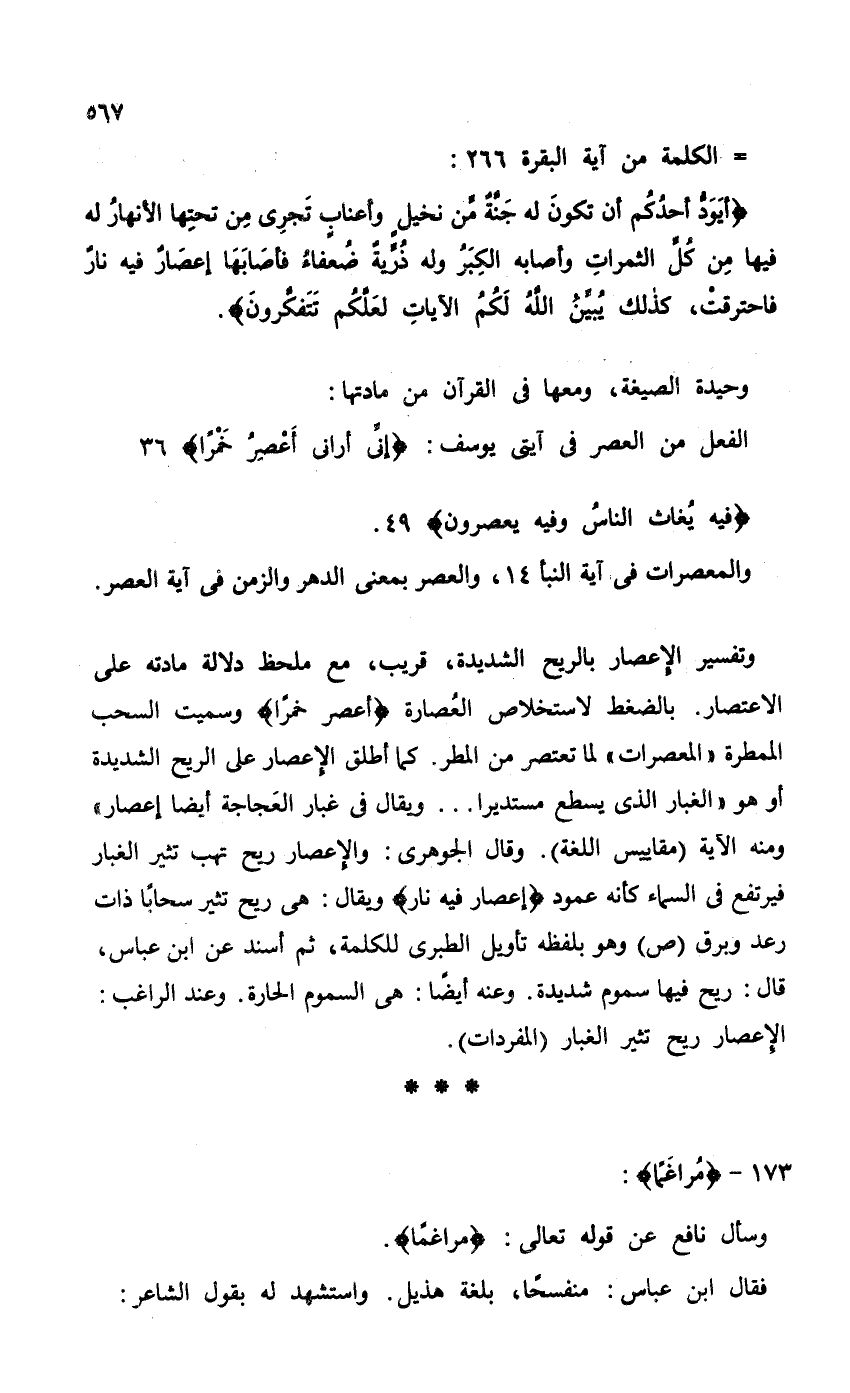 ٥٦٧
= الكلمة من آية البقرة ٢٦٦ :
﴿أيَوَدُّ أحدُكُم أن تكونَ له جَنَّةٌ مِّن نخيلٍ وأعنابٍ تَجرِى مِن تحتِها الأنهارُ له
فيها مِن كُلِّ الثمراتِ وأصابه الكِبَرُ وله ذُرِّيةٌ ضُعفاءُ فأصَابَهَا إعصَارٌ فيه نارٌ
فاحترقتْ، كذٰلك يُبيِّنُ اللَّهُ لَكُمُ الآياتِ لعَلَّكُم تَتَفكَّرونَ﴾.
وحيدة الصيغة، ومعها فى القرآن من مادتها :
الفعل من العصر فى آيتى يوسف : ﴿إنِّى أرانى أَعْصِرُ خَمْرًا﴾ ٣٦
﴿فيه يُغاث الناسُ وفيه يعصرون﴾ ٤٩.
والمعصرات فى آية النبأ ١٤، والعصر بمعنى الدهر والزمن فى آية العصر.
وتفسير الإعصار بالريح الشديدة، قريب، مع ملحظ دلالة مادته على
الاعتصار. بالضغط لاستخلاص العُصارة ﴿أعصر خمرًا﴾ وسميت السحب
الممطرة «المعصرات» لما تعتصر من المطر. كما أطلق الإعصار على الريح الشديدة
أو هو «الغبار الذى يسطع مستديرا... ويقال فى غبار العَجاجة أيضا إعصار»
ومنه الآية (مقاييس اللغة). وقال الجوهرى : والإعصار ريح تهب تثير الغبار
فيرتفع فى السماء كأنه عمود ﴿إعصار فيه نار﴾ ويقال : هى ريح تثير سحابًا ذات
رعد وبرق (ص) وهو بلفظه تأويل الطبرى للكلمة، ثم أسند عن ابن عباس،
قال : ريح فيها سموم شديدة. وعنه أيضًا : هى السموم الحارة. وعند الراغب :
الإعصار ريح تثير الغبار (المفردات).
* * *
١٧٣ - ﴿مُراغَمًا﴾ :
وسأل نافع عن قوله تعالى : ﴿مراغمًا﴾.
فقال ابن عباس : منفسحًا، بلغة هذيل. واستشهد له بقول الشاعر :